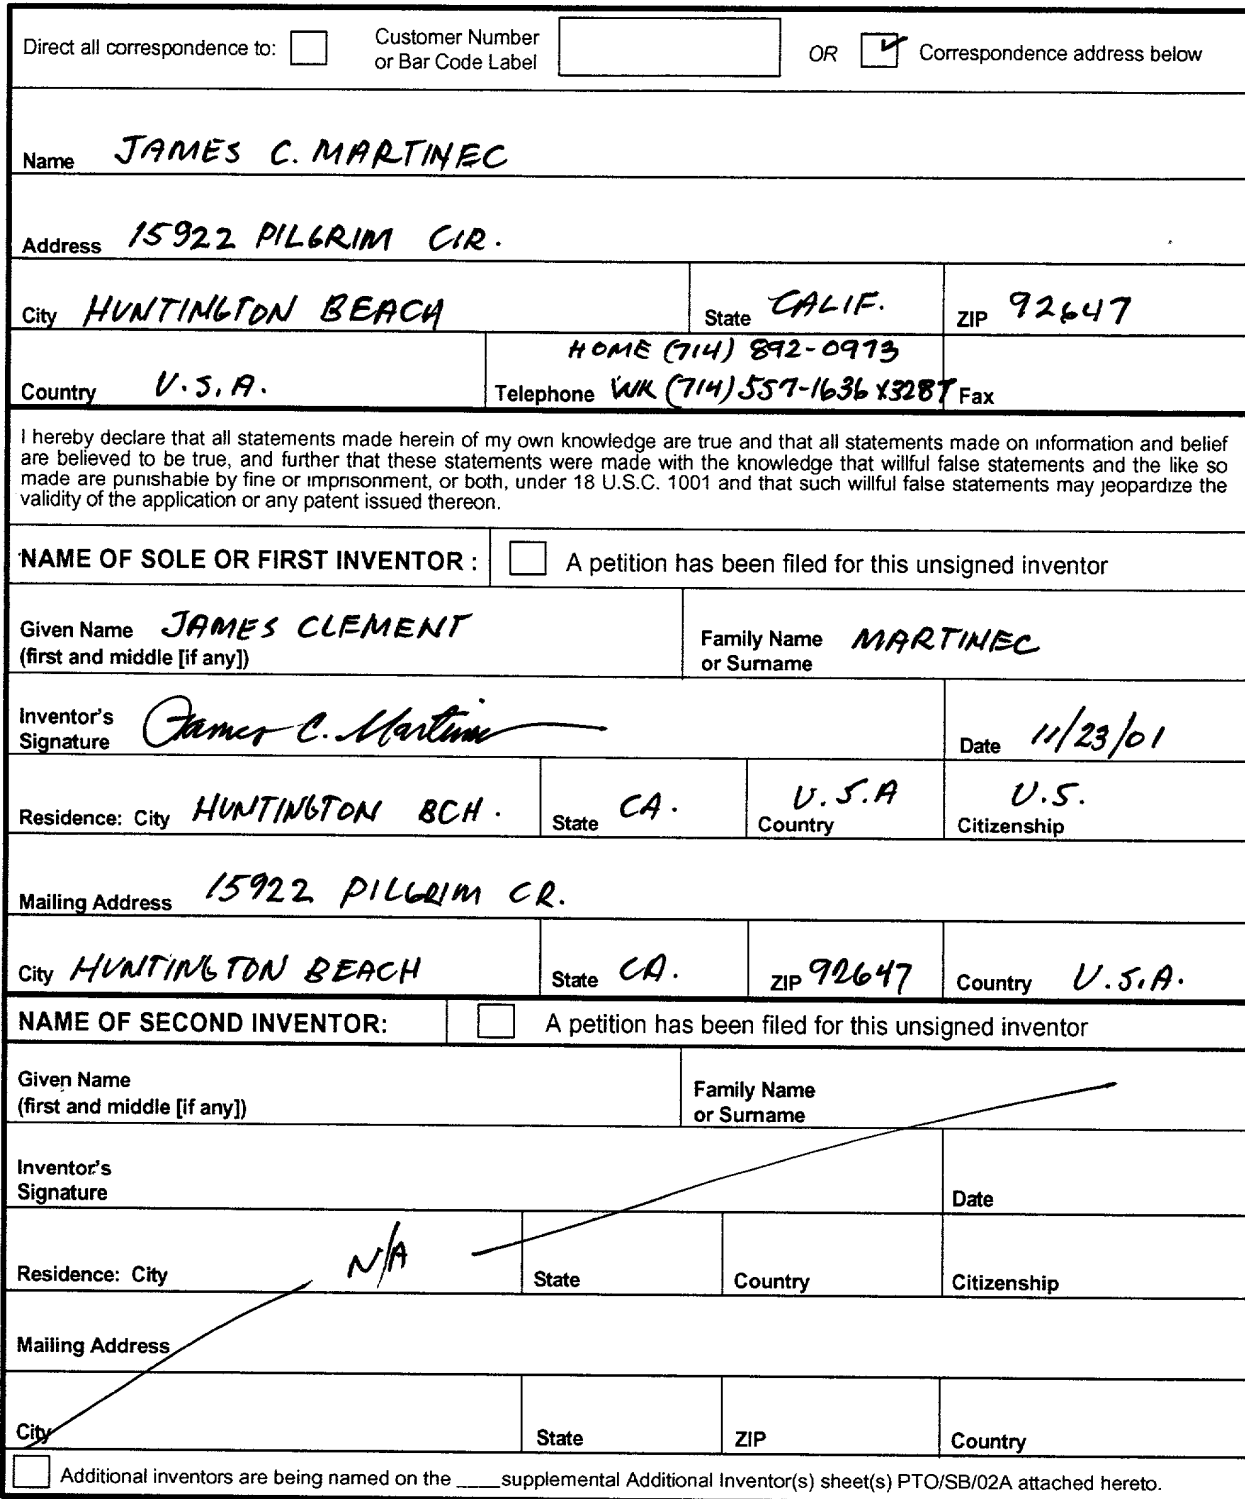 Direct all correspondence to: Customer Number or Bar Code Label OR Correspondence address below
Name JAMES C. MARTINEC
Address 15922 PILGRIM CIR.
City HUNTINGTON BEACH State CALIF. ZIP 92647
HOME (714) 892-0973
Country U.S.A. Telephone WK (714) 557-1636 X3287 Fax
I hereby declare that all statements made herein of my own knowledge are true and that all statements made on information and belief
are believed to be true, and further that these statements were made with the knowledge that willful false statements and the like so
made are punishable by fine or imprisonment, or both, under 18 U.S.C. 1001 and that such willful false statements may jeopardize the
validity of the application or any patent issued thereon.
NAME OF SOLE OR FIRST INVENTOR : A petition has been filed for this unsigned inventor
Given Name JAMES CLEMENT Family Name MARTINEC
(first and middle [if any]) or Surname
Inventor's
Signature James C. Martinec Date 11/23/01
Residence: City HUNTINGTON BCH. State CA. Country U.S.A Citizenship U.S.
Mailing Address 15922 PILGRIM CR.
City HUNTINGTON BEACH State CA. ZIP 92647 Country U.S.A.
NAME OF SECOND INVENTOR: A petition has been filed for this unsigned inventor
Given Name Family Name
(first and middle [if any]) or Surname
Inventor's
Signature Date
Residence: City N/A State Country Citizenship
Mailing Address
City State ZIP Country
Additional inventors are being named on the ____supplemental Additional Inventor(s) sheet(s) PTO/SB/02A attached hereto.